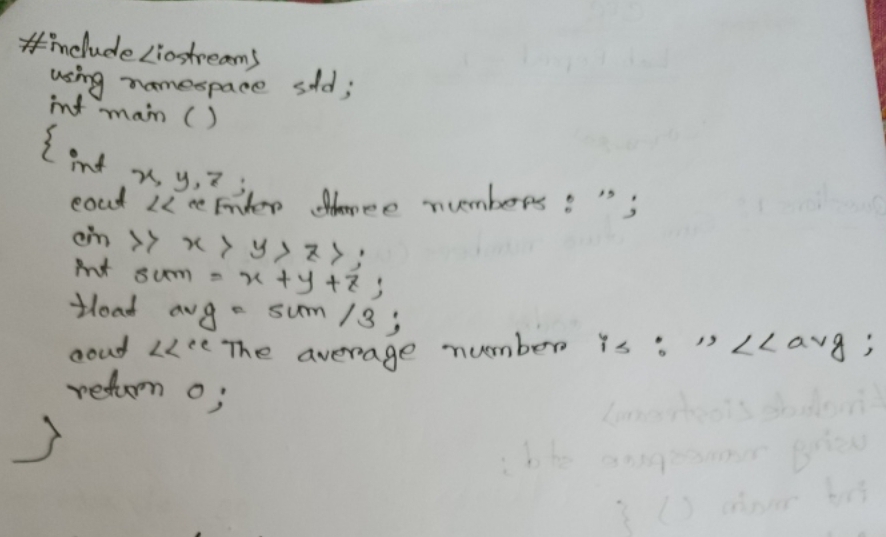 #include <iostream>
using namespace std;
int main ()
{
int x, y, z;
cout << "Enter three numbers : ";
cin >> x > y > z >;
int sum = x + y + z;
float avg = sum / 3;
cout << "The average number is : " << avg;
return 0;
}